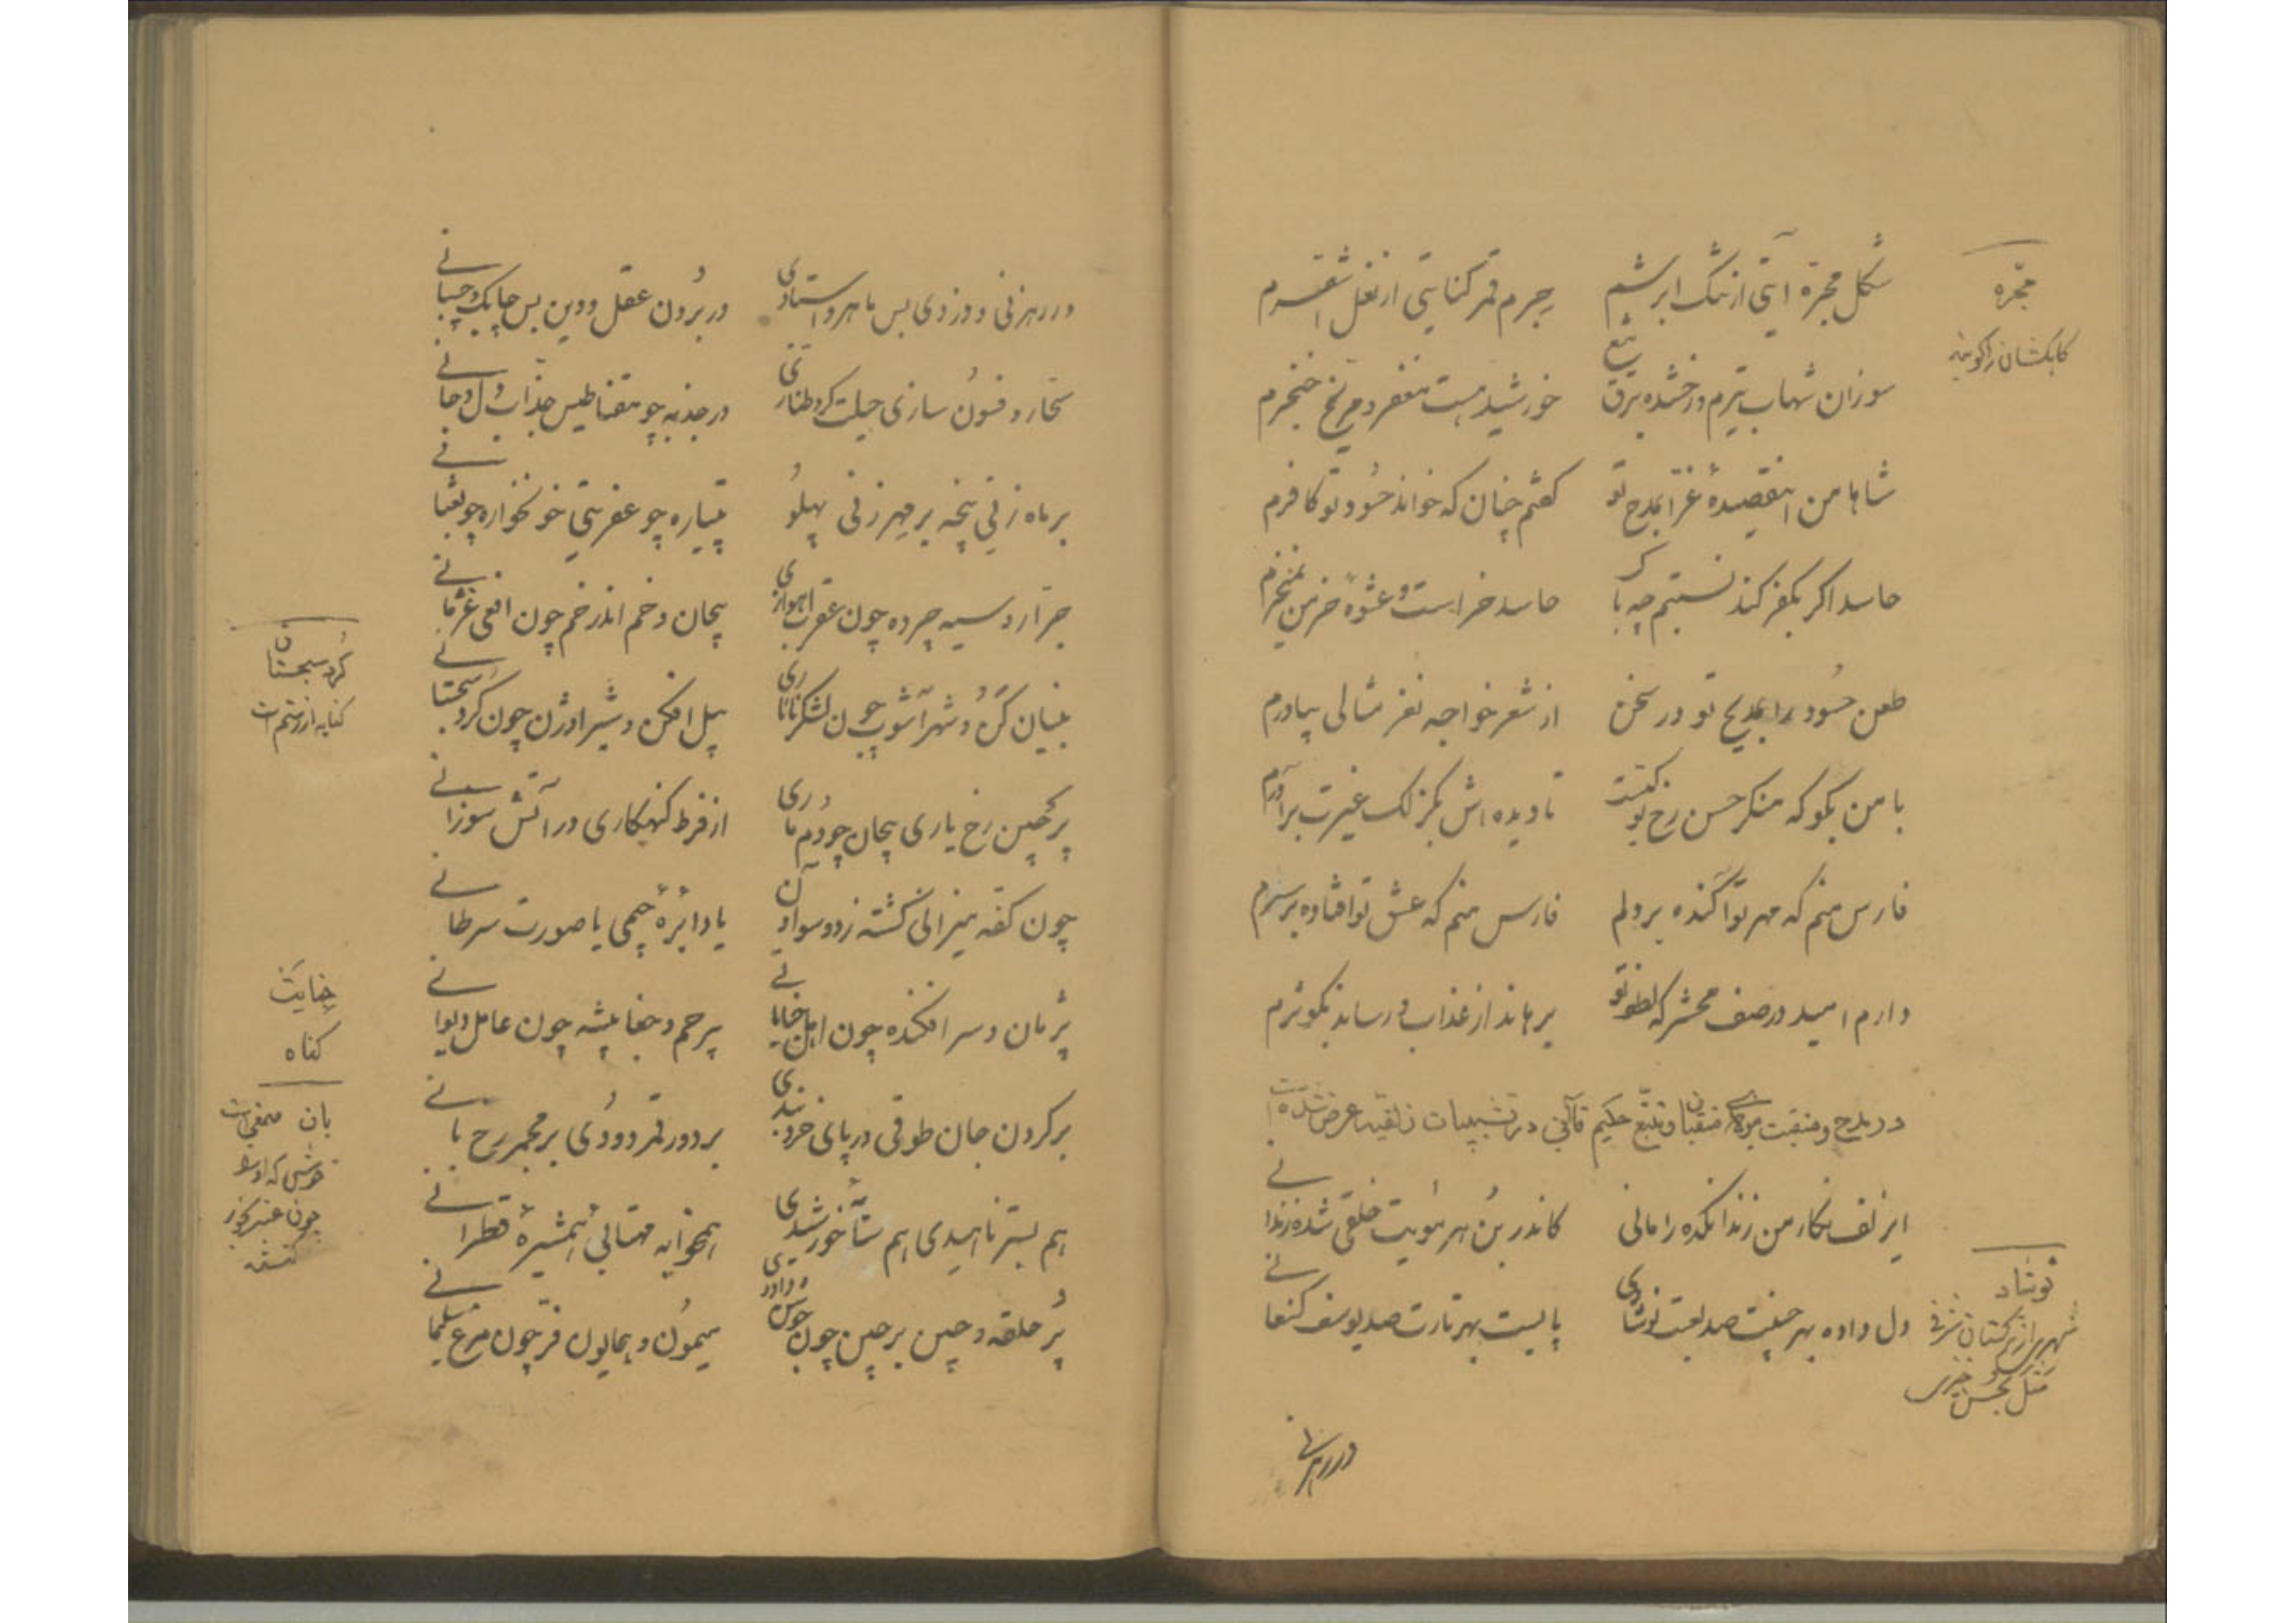 مجرّه
کاهکشان را گویند
شکل مجرّه آیتی از تنگ ابرشم
جرم قمر کنایتی از نعل اشقرم
سوزان شهاب تیرم و رخشنده برق تیغ
خورشید هست مغفر و مریخ خنجرم
شاها من اینقصیدهٔ غرّا بمدح تو
گفتم چنان که خواند حسُود تو کافرم
حاسد اگر بکفر کند نسبتم چه باک
حاسد خر است و عشوهٔ خر من نمیخرم
طعن حسُود را بمدیح تو در سخن
از شعر خواجه نغز مثالی بیاورم
با من بگو که منکر حسن رخ تو کیست
تا دیده اش بگزلک غیرت برآورم
فارس منم که مهر تو آکنده بر دلم
فارس منم که عشق تو افتاده بر سرم
دارم امید در صف محشر که لطف تو
برهاند از عذاب و رساند بکوثرم
در مدح و منقبت مولای متقیان و تتبّع حکیم قاآنی در تشبیهات زلفیه عرض شده است
ای زلف نگار من زندانکده را مانی
کاندر بُن هر مُویت خلقی شده زندانی
دل داده بهر جفتت صد لعبت نوشادی
پابست بهر تارت صد یوسف کنعانی
نوشاد
شهری از ترکستان شرقی
مثل بحسن خیزی
در رهزنی
در رهزنی و دزدی بس ماهر و استادی
در بُردن عقل و دین بس چابک و چسبانی
سحّار و فسُون سازی حیلت گر و طنّازی
در جذبه چو مقناطیس جذّاب دل و جانی
بر ماه زنی پنجه بر مهر زنی پهلُو
پتیاره چو عفریتی خونخواره چو ثعبانی
جرّار و سیه چرده چون عقرب اهوازی
پیچان و خم اندر خم چون افعی غژمانی
بنیان کَن و شهرآشوب چون لشکر تاتاری
پیل افکن و شیر اوژن چون گُرد سجستانی
گُرد سجستان
کنایه از رستم است
پرچین رخ یاری پیچان چو دم ماری
از فرط گنهکاری در آتش سوزانی
چون کفّه میزانی گشته ز دو سو آون
یا دایرهٔ چیمی یا صورت سرطانی
پژمان و سر افکنده چون اهل جنایاتی
بیرحم و جفا پیشه چون عامل دیوانی
جنایت
گناه
بر گردن جان طوقی در پای خرد بندی
بر دور قمر دوُدی بر مجمر رخ بانی
بان صمغی است
خوش که او را
چون عنبر بخور
کنند
هم بستر ناهیدی هم شأن خورشیدی
همخوابه مهتابی همشیرهٔ قطرانی
پُر حلقه و چین بر چین چون جوشن داودی
میمُون و همایون فرّ چون مرغ سلیمانی